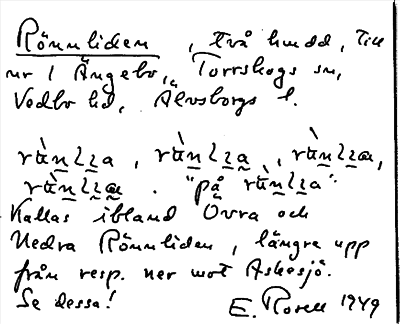 Rönnliden, två hundd, till
nr 1 Ängebo, Torrskogs sn,
Vedbo hd, Älvsborgs l.
"på
Kallas ibland Övra och
Nedra Rönnliden, längre upp
från resp. ner mot Askesjö.
Se dessa!
E. Rosell 1949